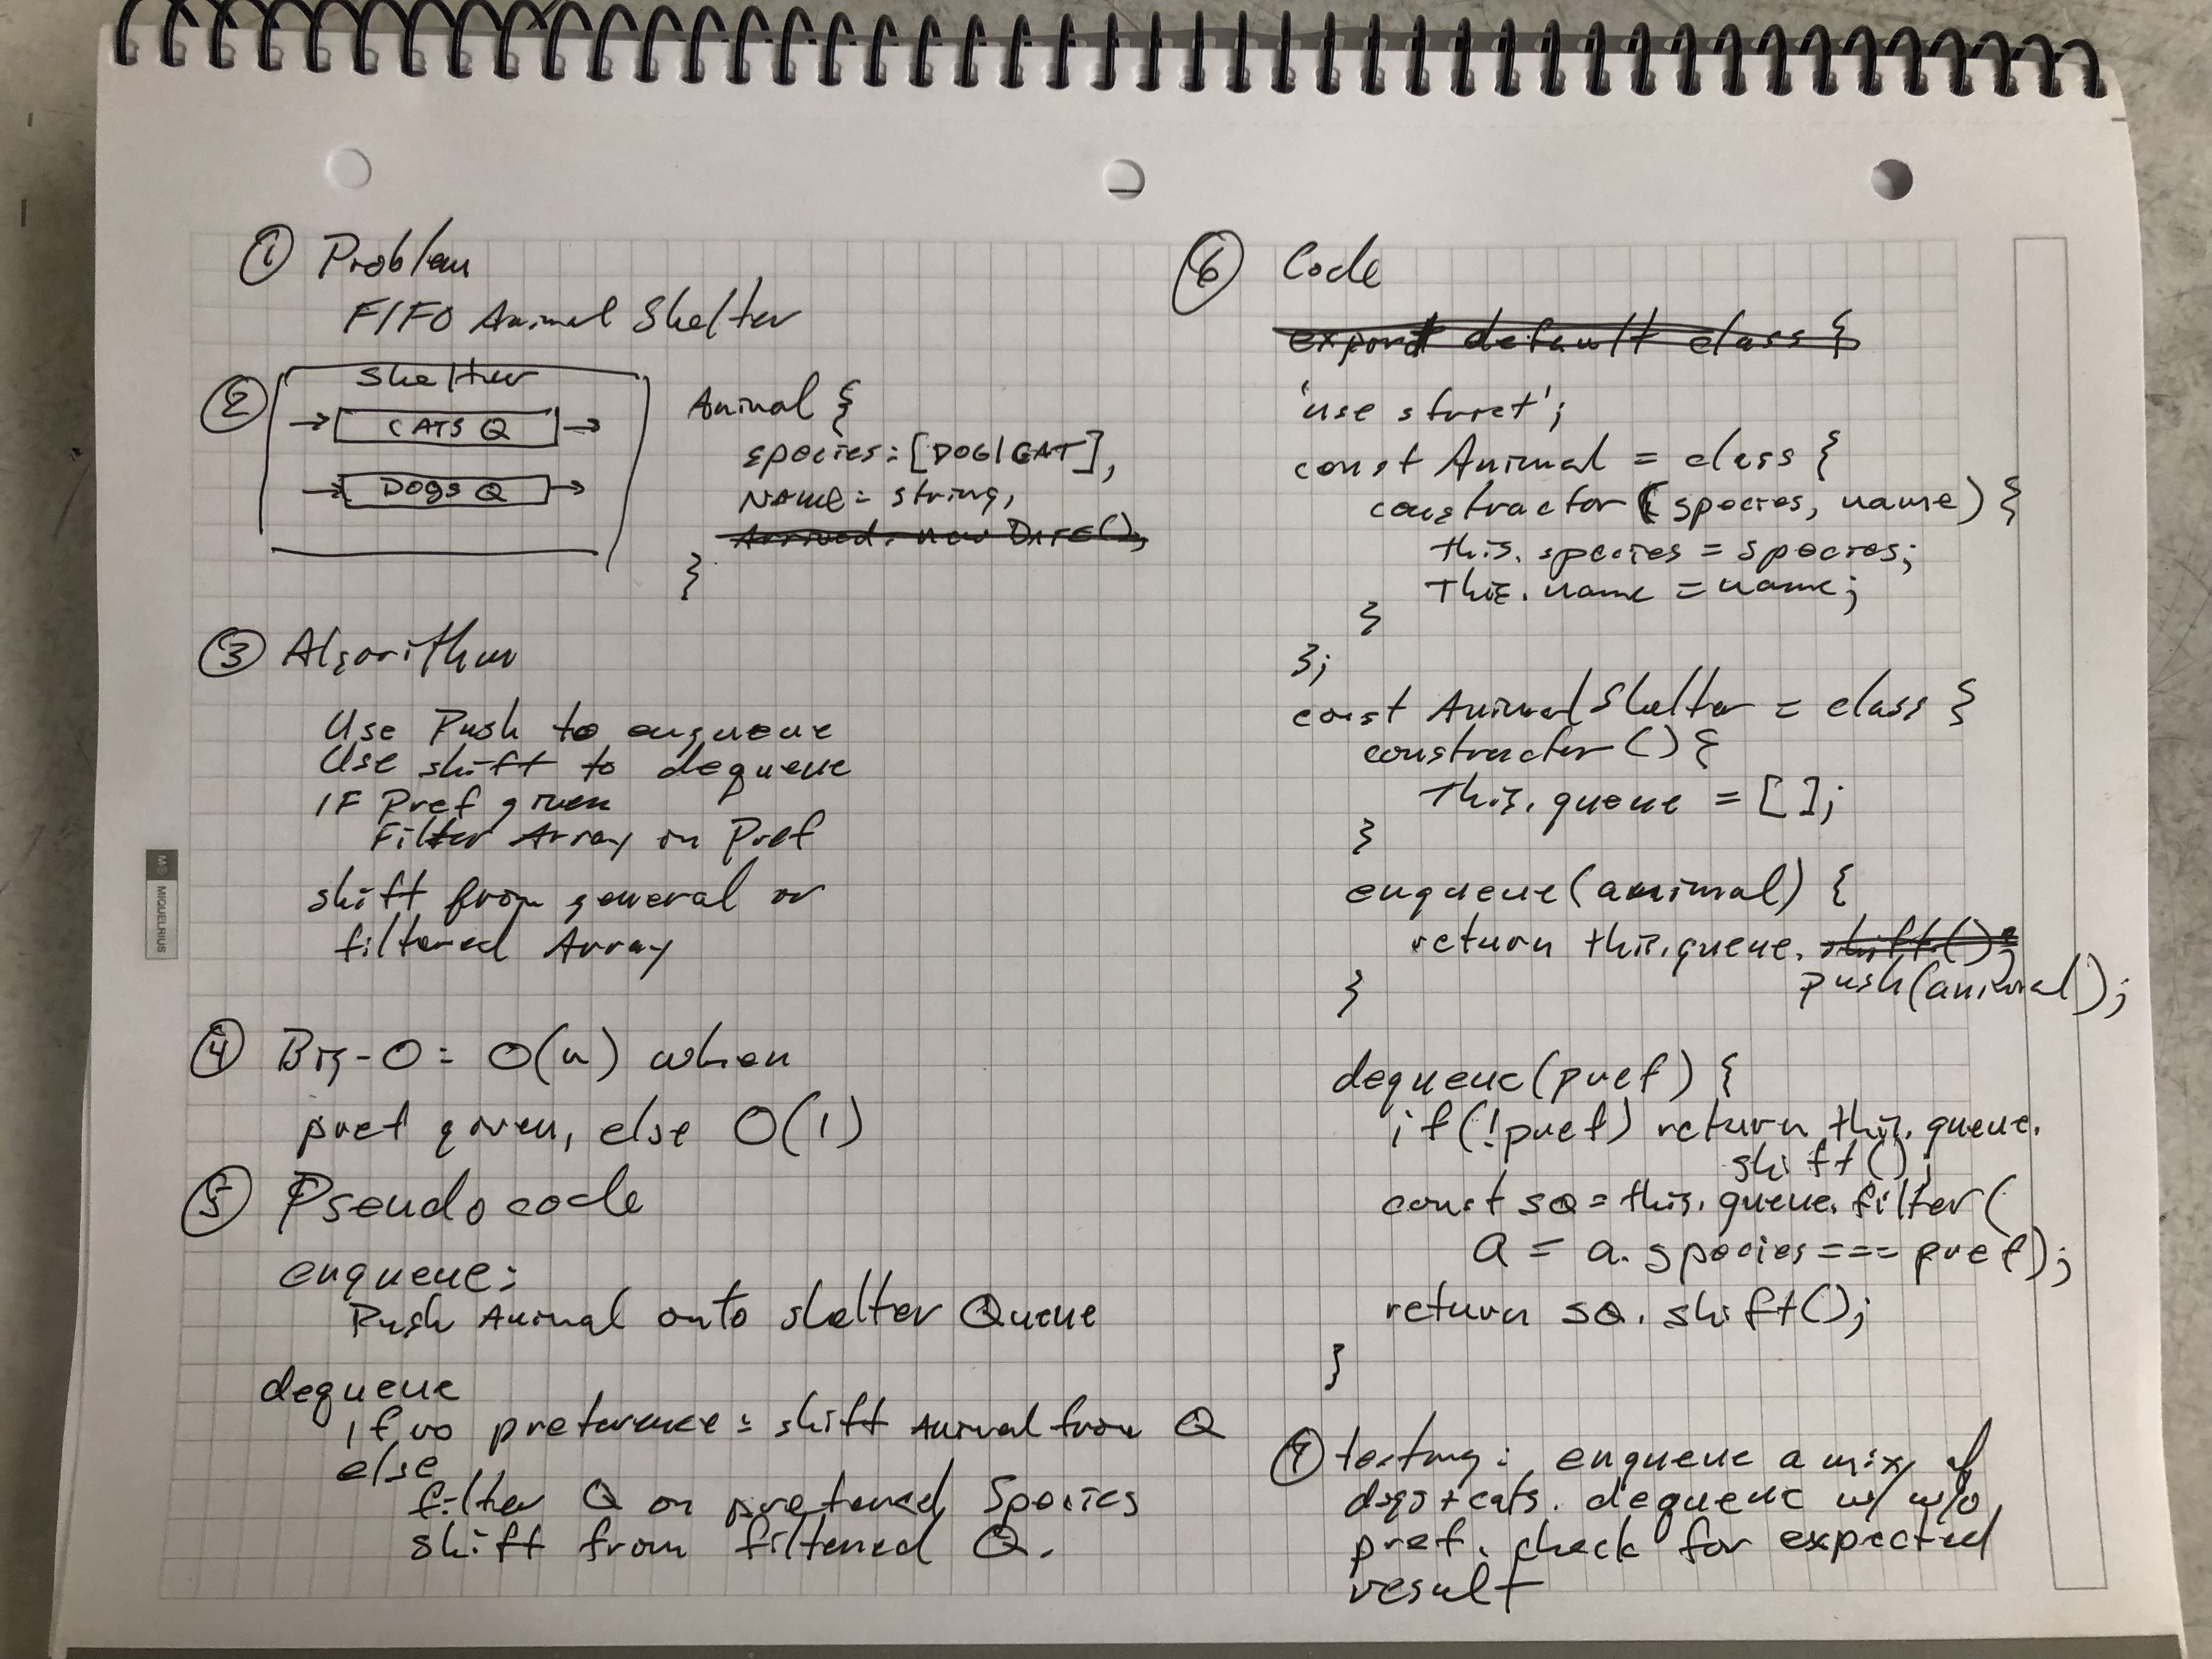 ① Problem
FIFO Animal Shelter
② Shelter
→ CATS Q →
→ DOGS Q →
Animal {
species: [DOG|CAT],
NAME: string,
Arrived: new DATE(),
}
③ Algorithm
Use Push to enqueue
Use shift to dequeue
IF Pref given
Filter Array on Pref
shift from general or
filtered Array
④ Big-O: O(n) when
pref given, else O(1)
⑤ Pseudo code
enqueue:
Push Animal onto shelter Queue
dequeue
if no preference: shift Animal from Q
else
filter Q on preferred Species
shift from filtered Q.
MIQUELRIUS
⑥ Code
export default class {
'use strict';
const Animal = class {
constructor (species, name) {
this.species = species;
this.name = name;
}
};
const AnimalShelter = class {
constructor () {
this.queue = [ ];
}
enqueue(animal) {
return this.queue. shift();
push(animal);
}
dequeue(pref) {
if(!pref) return this.queue.
shift();
const sQ = this.queue.filter(
a = a.species === pref);
return sQ.shift();
}
⑦ testing: enqueue a mix of
dogs + cats. dequeue w/ w/o
pref. check for expected
result